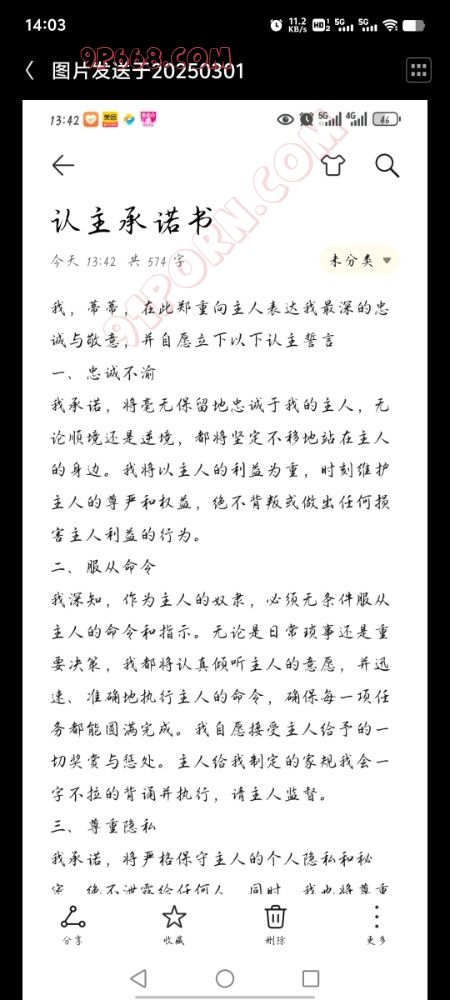 14:03
11.2 KB/s
HD 1 2
5G
5G
9P668.COM
图片发送于20250301
13:42
美团
5G
4G
46
91PORN.COM
认主承诺书
今天 13:42 共 574 字
未分类
我，蒂蒂，在此郑重向主人表达我最深的忠
诚与敬意，并自愿立下以下认主誓言
一、忠诚不渝
我承诺，将毫无保留地忠诚于我的主人，无
论顺境还是逆境，都将坚定不移地站在主人
的身边。我将以主人的利益为重，时刻维护
主人的尊严和权益，绝不背叛或做出任何损
害主人利益的行为。
二、服从命令
我深知，作为主人的奴隶，必须无条件服从
主人的命令和指示。无论是日常琐事还是重
要决策，我都将认真倾听主人的意愿，并迅
速、准确地执行主人的命令，确保每一项任
务都能圆满完成。我自愿接受主人给予的一
切奖赏与惩处。主人给我制定的家规我会一
字不拉的背诵并执行，请主人监督。
三、尊重隐私
我承诺，将严格保守主人的个人隐私和秘
密，绝不泄露给任何人。同时，我也将尊重
分享
收藏
删除
更多